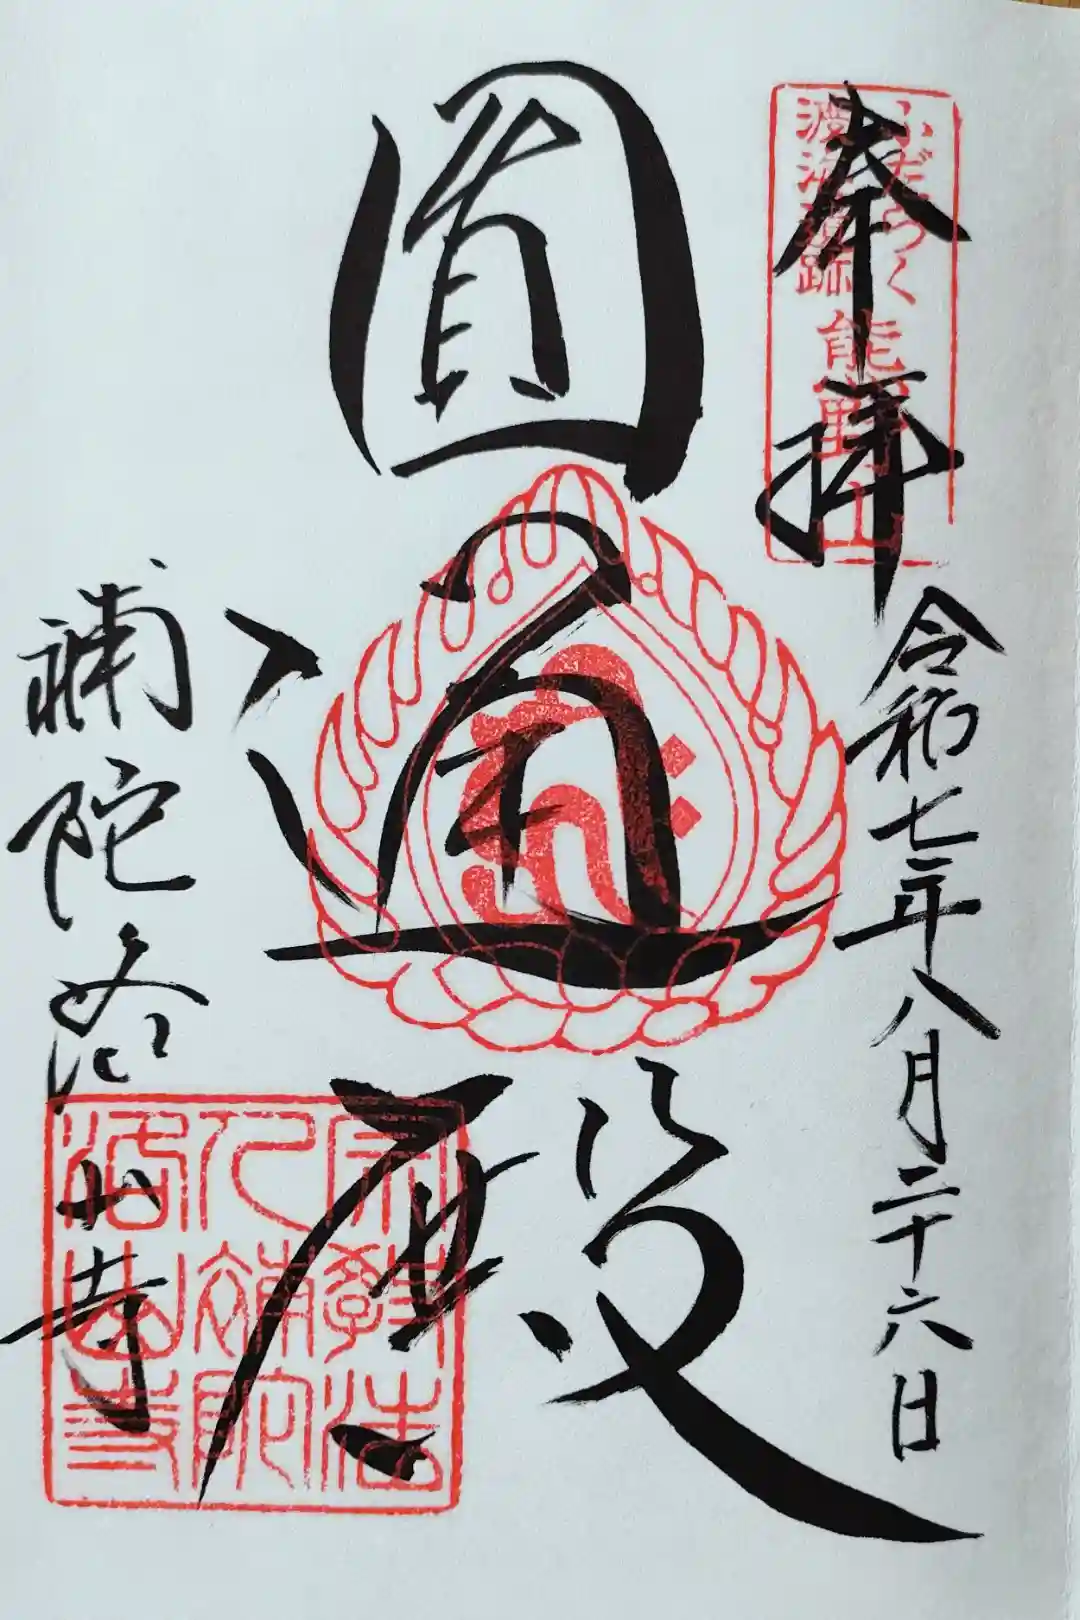 奉拝
令和七年八月二十六日
ふだらく
渡海遺跡
熊野山
圓通殿
補陀洛山寺
宗教法
人補陀
洛山寺